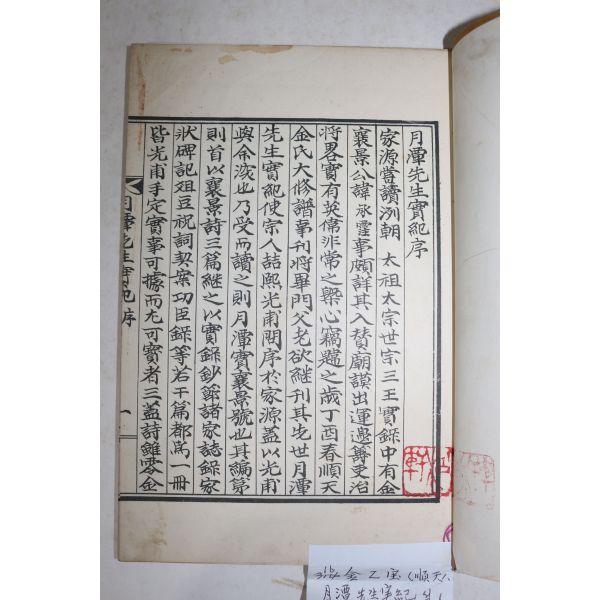 月潭先生實紀序
家源嘗讀洌朝 太祖太宗世宗三王實錄中有金
襄景公諱承霔事頗詳其入賛廟謨出運邊籌吏治
將畧實有英偉非常之槩心竊韙之歲丁酉春順天
金氏大修譜事刊將畢門父老欲継刊其先世月潭
先生實紀使宗人喆熙光甫問序於家源盖以光甫
與余渡也乃受而讀之則月潭實襄景號也其編第
則首以襄景詩三篇継之以實錄鈔節諸家誌錄家
狀碑記俎豆祝詞契案功臣錄等若干篇都爲一冊
皆光甫手定實事可據而尤可寶者三盖詩雖零金
月潭先生實紀序
一
金乙宝(順天)
月潭先生実紀